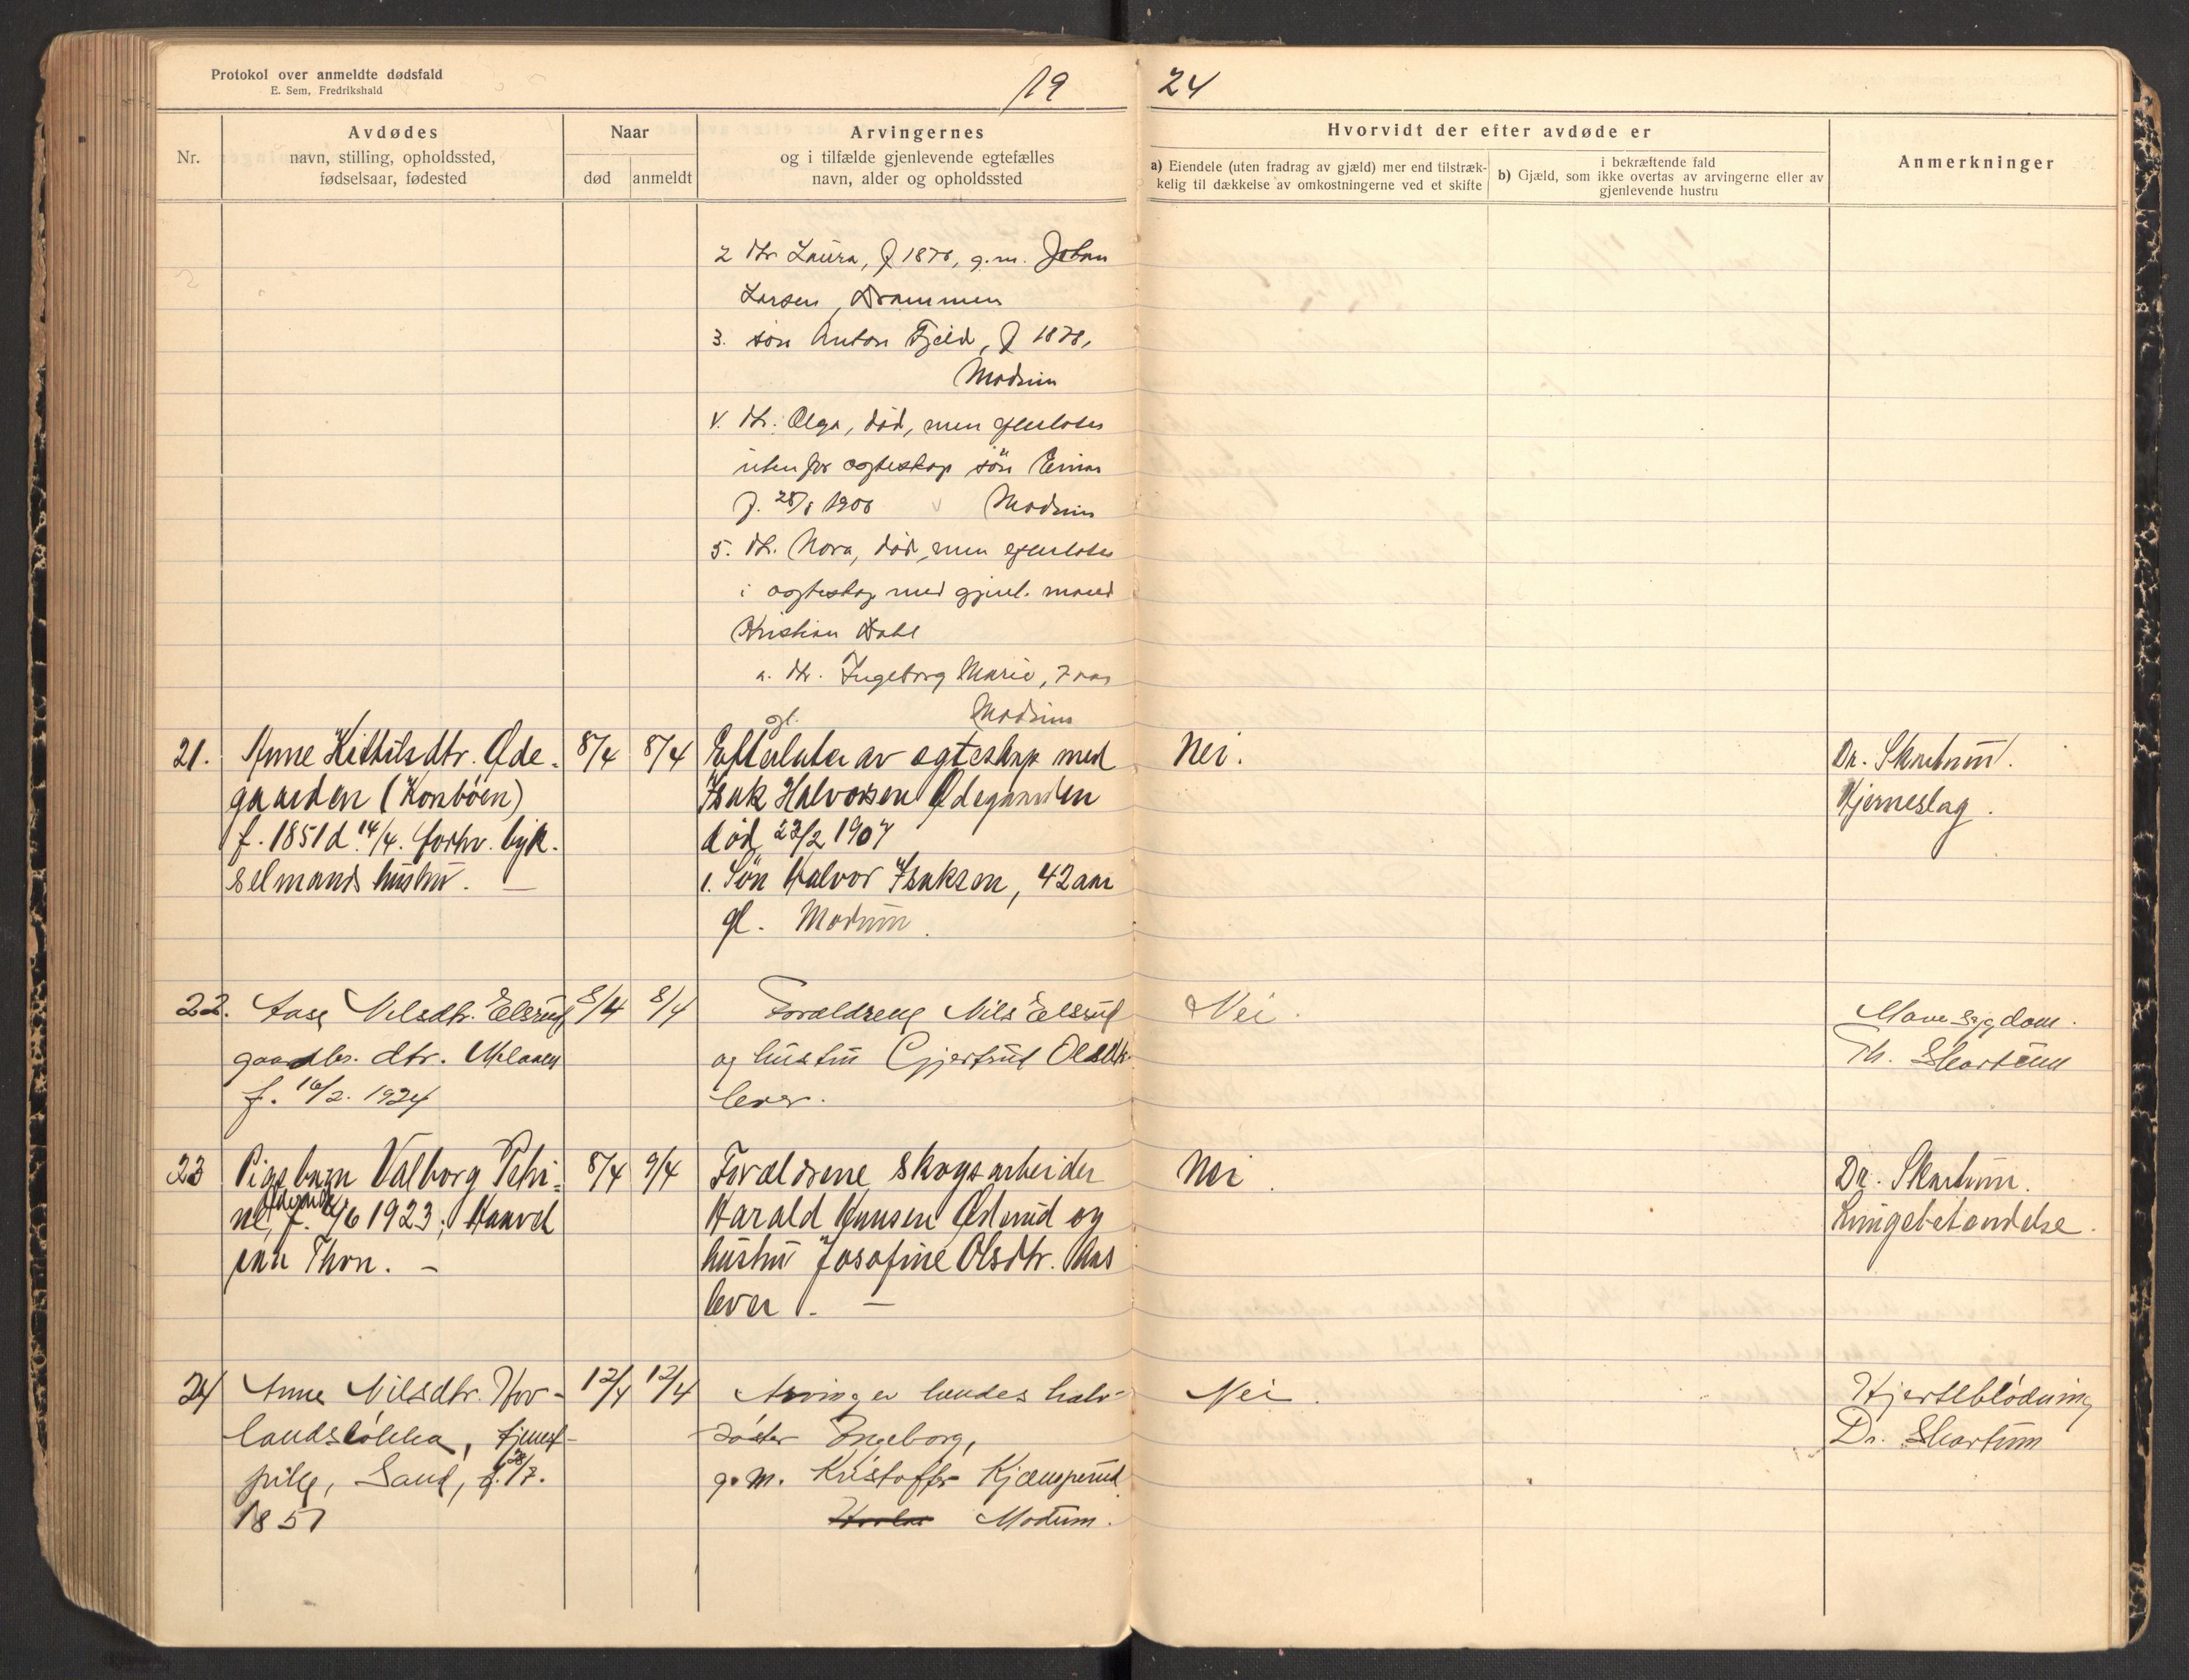 Protokol over anmeldte dødsfald
E. Sem, Fredrikshald
19 24
Nr.
Avdødes
navn, stilling, opholdssted,
fødselsaar, fødested
Naar
død
anmeldt
Arvingernes
og i tilfælde gjenlevende egtefælles
navn, alder og opholdssted
Hvorvidt der efter avdøde er
a) Eiendele (uten fradrag av gjæld) mer end tilstræk-
kelig til dækkelse av omkostningerne ved et skifte
i bekræftende fald
b) Gjæld, som ikke overtas av arvingerne eller av
gjenlevende hustru
Anmerkninger
2 dtr Laura, f 1876, g.m. Johan
Larsen, Drammen
3. søn Anton Fjeld, f 1878,
Modum
4. dtr. Olga, død, men efterlater
utenfor egteskap søn Einar
f. 1906 Modum
5. dtr. Nora, død, men efterlater
i egteskap med gjenl. mand
Kristian Dahl
a. dtr. Ingeborg Marie, 7 aar
gl. Modum
21.
Anne Kittilsdtr. Øde-
gaarden (Konbøen)
f. 1851 d. 14/4. forhv. byk-
selmands hustru. —
8/4
8/4
Efterlater av egteskap med
Isak Halvorsen Ødegaarden
død 23/2 1907
1. Søn Halvor Isaksen, 42 aar
gl. Modum.
Nei.
Dr. Skartum.
Hjerneslag.
22.
Aase Nilsdtr. Elsrud
gaardbr. dtr.
f. 16/2. 1924
8/4
8/4
Forældrene Nils Elsrud
og hustru Gjertrud Olsdtr.
lever.
Nei.
Mavesygdom.
Th. Skartum
23
Pigebarn Valborg Petri-
ne, f. 4/6 1923;
Thon. —
8/4
9/4
Forældrene skogsarbeider
Harald Hansen Øderud og
hustru Josefine Olsdtr. Aas
lever. —
Nei.
Dr. Skartum.
Lungebetændelse.
24
Anne Nilsdtr. Hov-
landsløkka, tjenest-
pike, Sand, f. 28/7.
1851
12/4
12/4
Arvinger hendes halv-
søster Ingeborg,
g.m. Kristoffer Kjænsperud
Modum.
Nei.
Hjerteblødning
Dr. Skartum